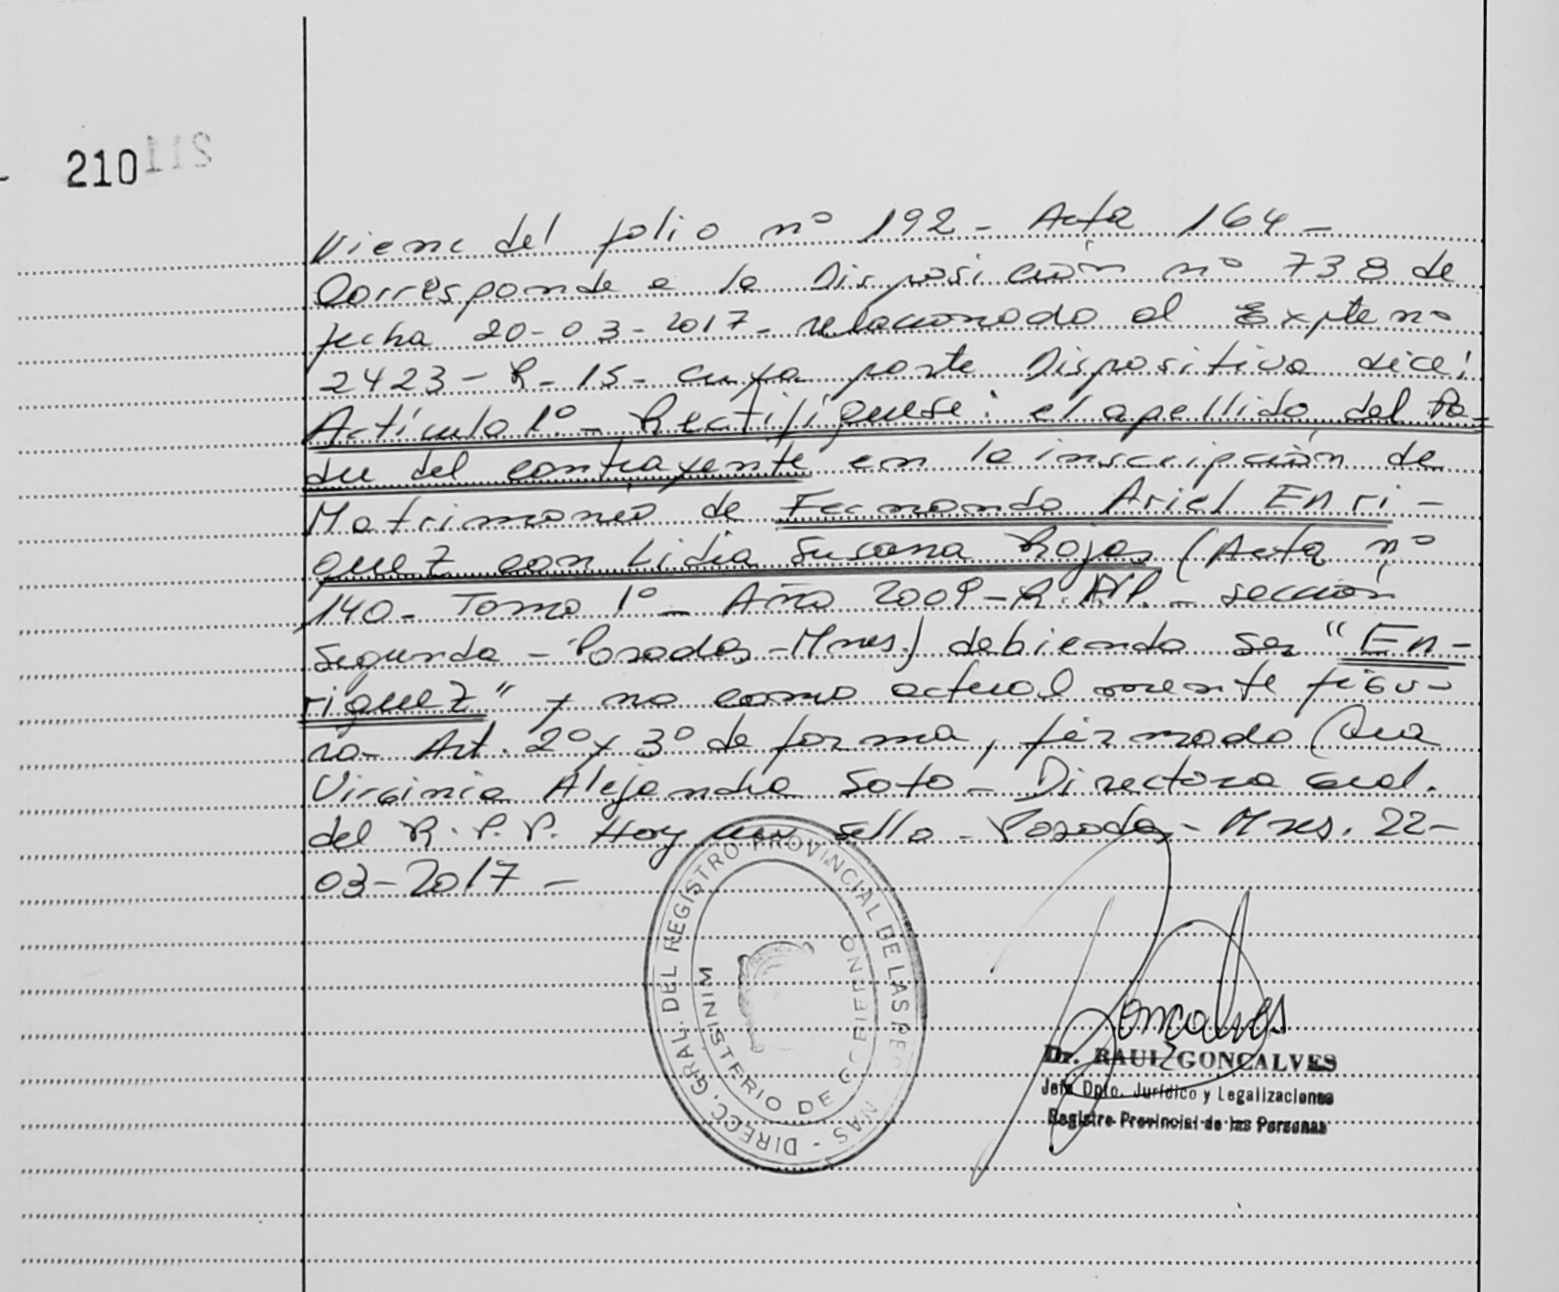 210
211
Viene del folio nº 192 - Acta 164 -
Corresponde a la Disposición nº 738 de
fecha 20-03-2017- relacionado al Expte nº
2423-R-15- cuya parte Dispositiva dice:
Artículo 1º - Rectifíquese: el apellido del Pa-
dre del contrayente en la inscripción de
Matrimonio de Fernando Ariel Enri-
quez con Lidia Susana Rojas (Acta nº
140- Tomo 1º - Año 2009 - - sección
Segunda - Posadas - Mnes) debiendo ser "En-
riquez" y no como actualmente figu-
ra- Art. 2º y 3º de forma, firmado
Virginia Alejandra Soto - Directora Gral.
del R.P.P. Hay un sello - Posadas - Mnes. 22-
03-2017 -
DIRECC. GRAL. DEL REGISTRO PROVINCIAL DE LAS PER NAS -
MINISTERIO DE GOBIERNO
Goncalves
Dr. RAUL GONCALVES
Jefe Dpto. Jurídico y Legalizaciones
Registro Provincial de las Personas